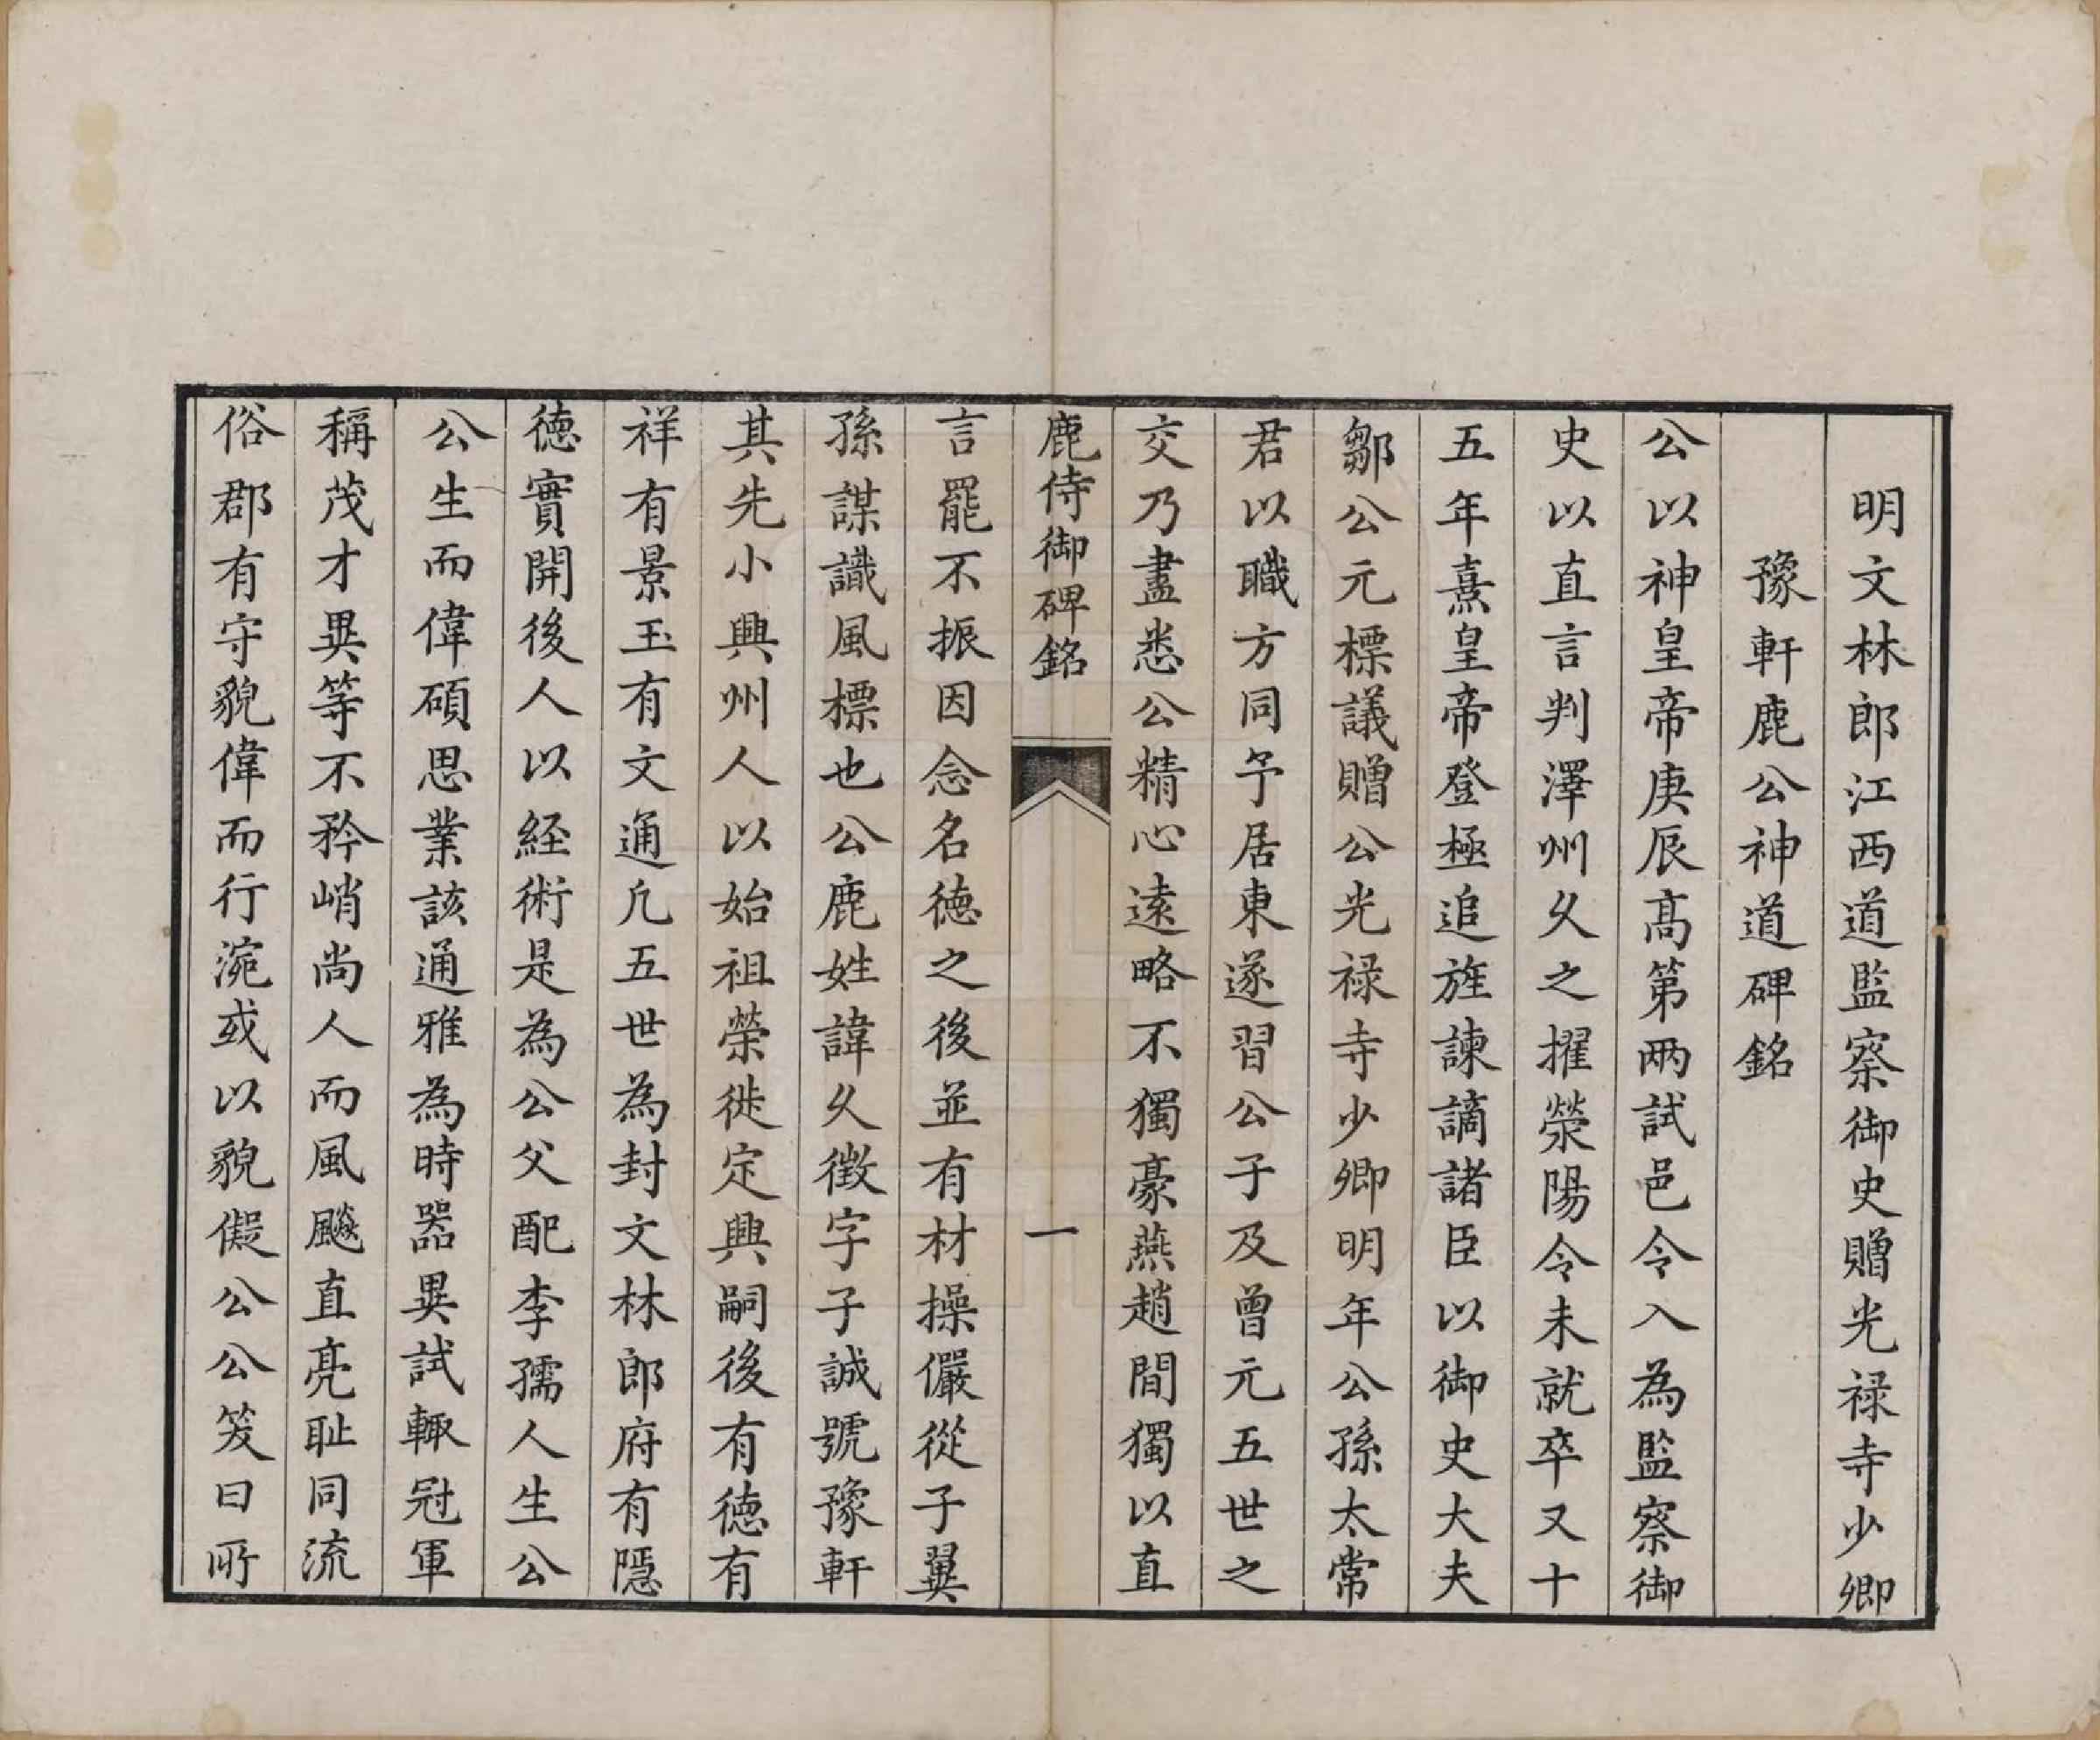 明文林郎江西道監察御史贈光禄寺少卿
豫軒鹿公神道碑銘
公以神皇帝庚辰髙第兩試邑令入為監察御
史以直言判澤州久之擢滎陽令未就卒又十
五年熹皇帝登極追旌諫謫諸臣以御史大夫
鄒公元標議贈公光禄寺少卿明年公孫太常
君以職方同予居東遂習公子及曾元五世之
交乃盡悉公精心遠略不獨豪燕趙間獨以直
鹿侍御碑銘
一
言罷不振因念名徳之後並有材操儼從子翼
孫謀識風標也公鹿姓諱久徵字子誠號豫軒
其先小興州人以始祖榮徙定興嗣後有徳有
祥有景玉有文通凢五世為封文林郎府有隱
徳實開後人以経術是為公父配李孺人生公
公生而偉碩思業該通雅為時噐異試輙冠軍
稱茂才異等不矜峭尚人而風飈直亮耻同流
俗郡有守貌偉而行涴或以貌儗公公笑曰所